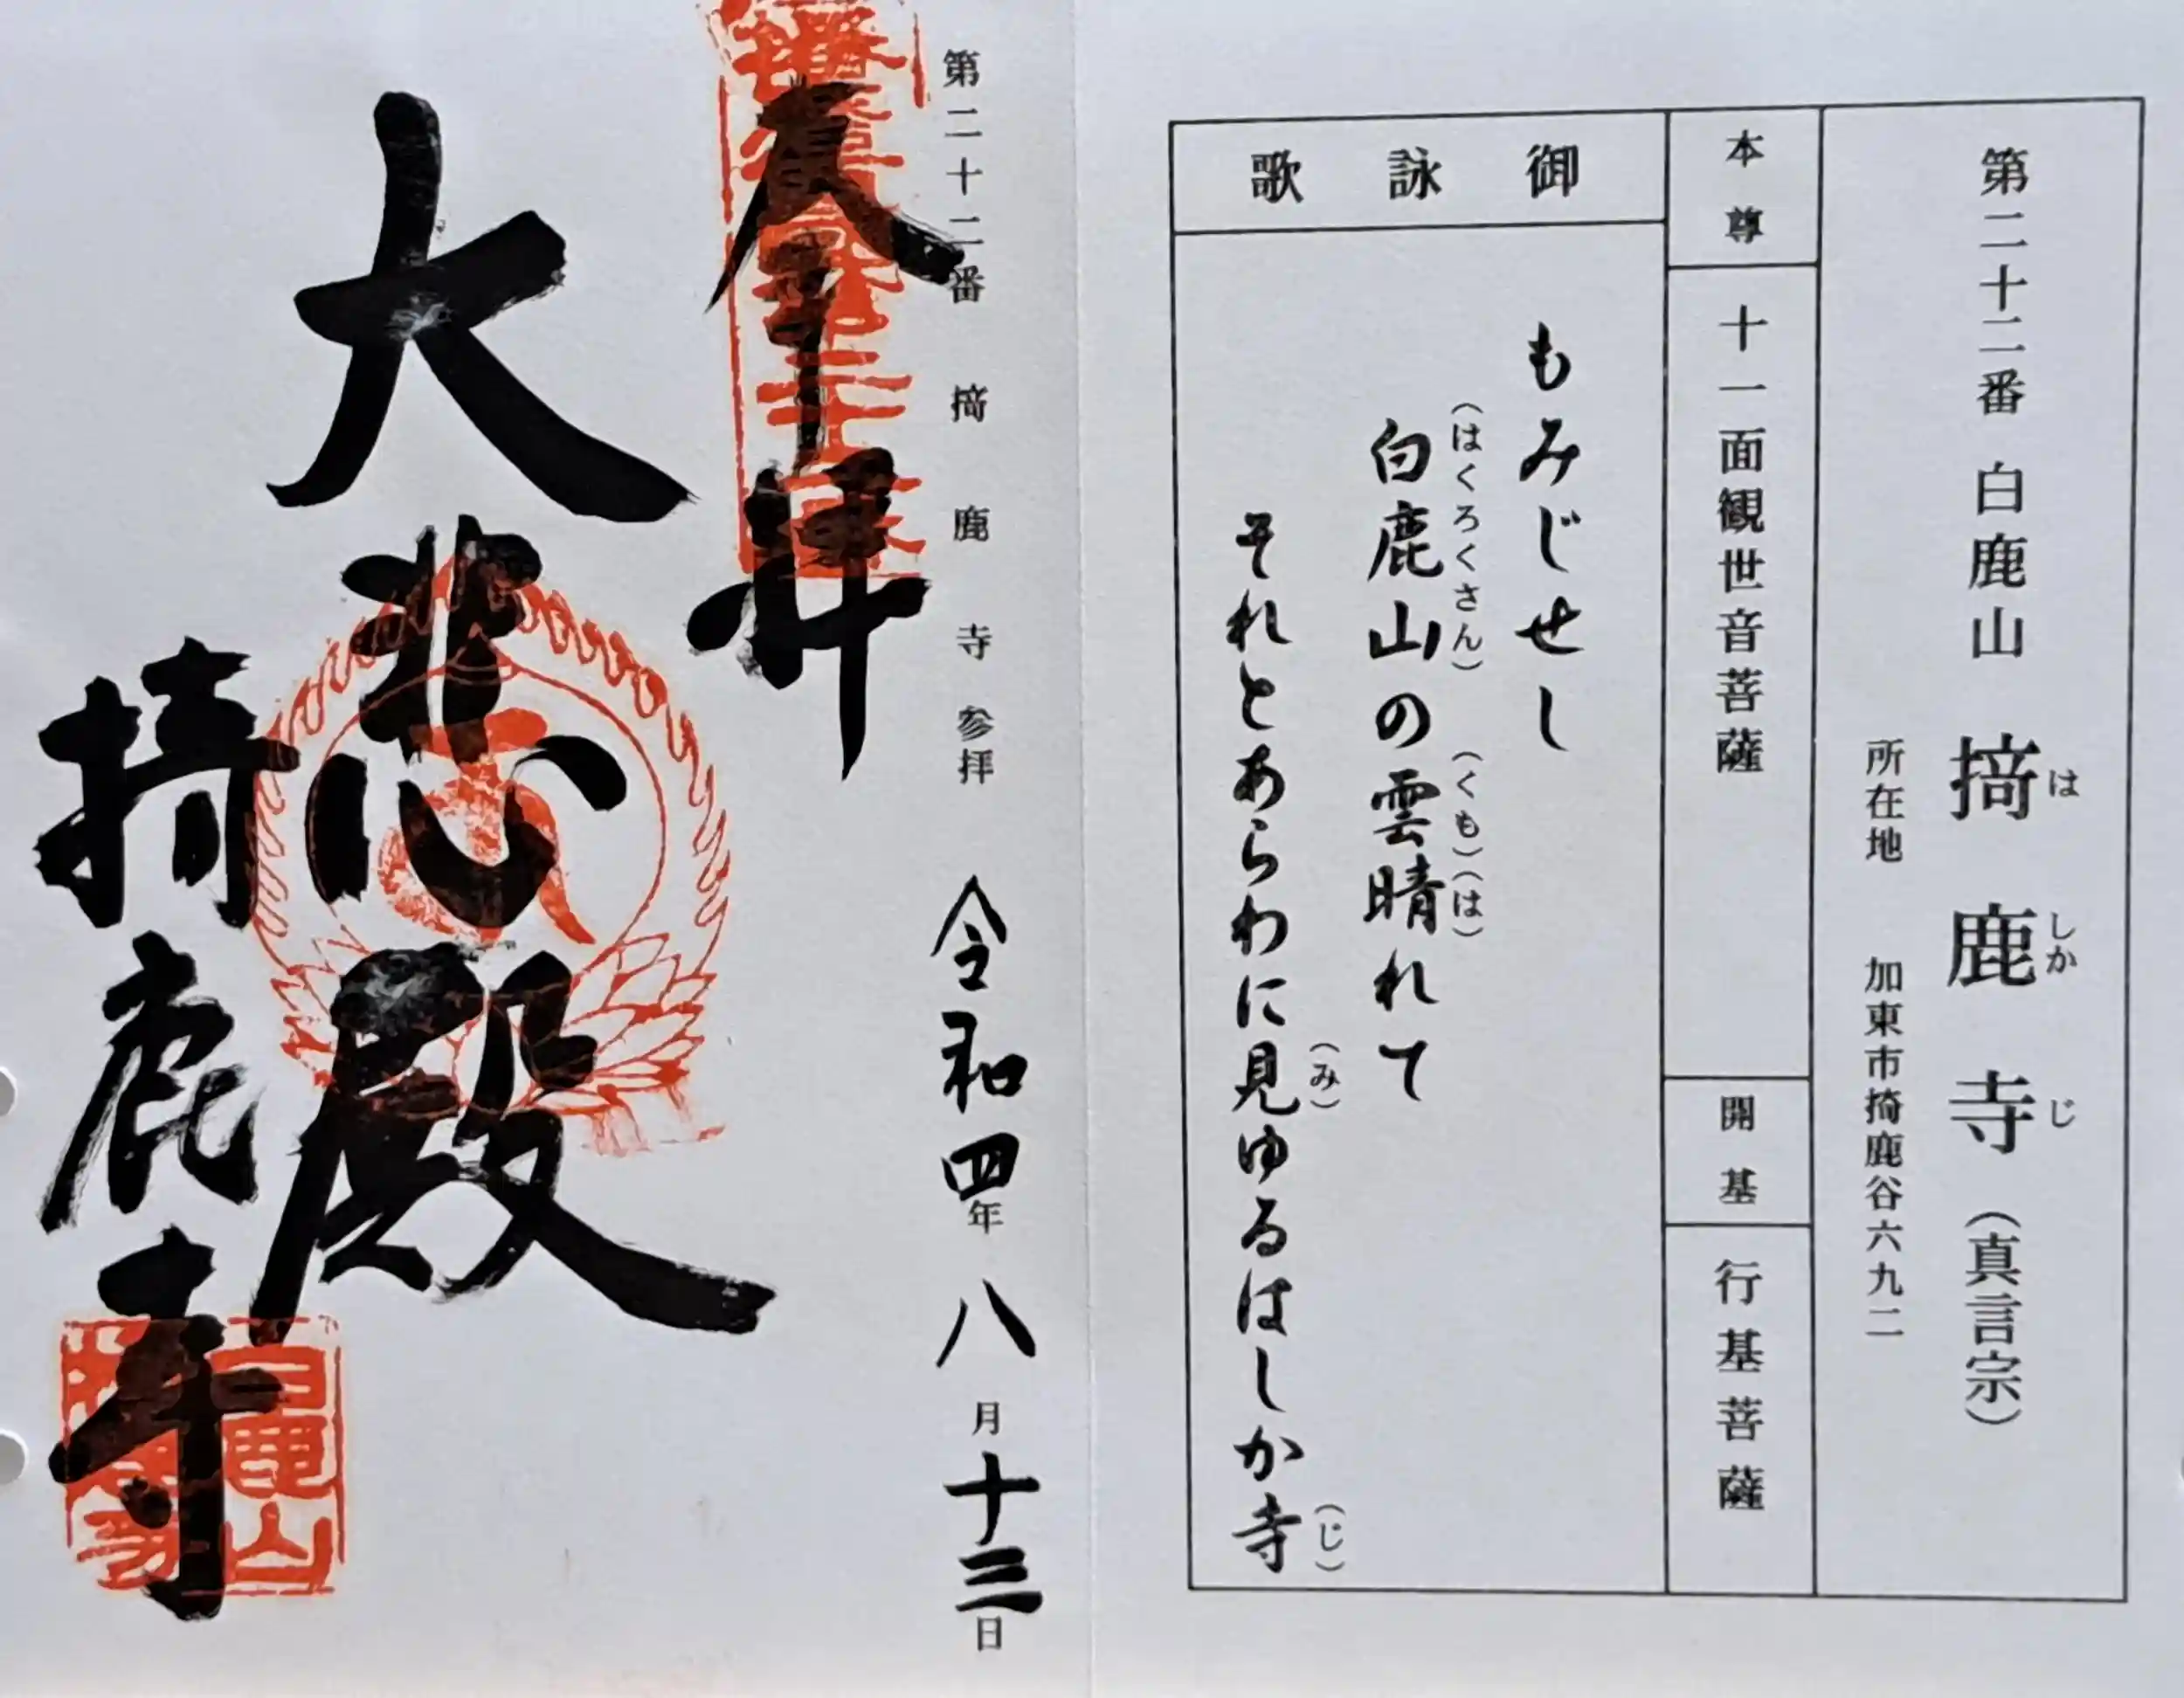 第二十二番 白鹿山 掎鹿寺（真言宗）
は しか じ
所在地 加東市掎鹿谷六九二
本尊
十一面観世音菩薩
開基
行基菩薩
御詠歌
もみじせし
白鹿山の雲晴れて
（はくろくさん）（くも）（は）
それとあらわに見ゆるはしか寺
（み）（じ）
第二十二番 掎鹿寺参拝 令和四年八月十三日
奉拝
大悲殿
掎鹿寺
白鹿山